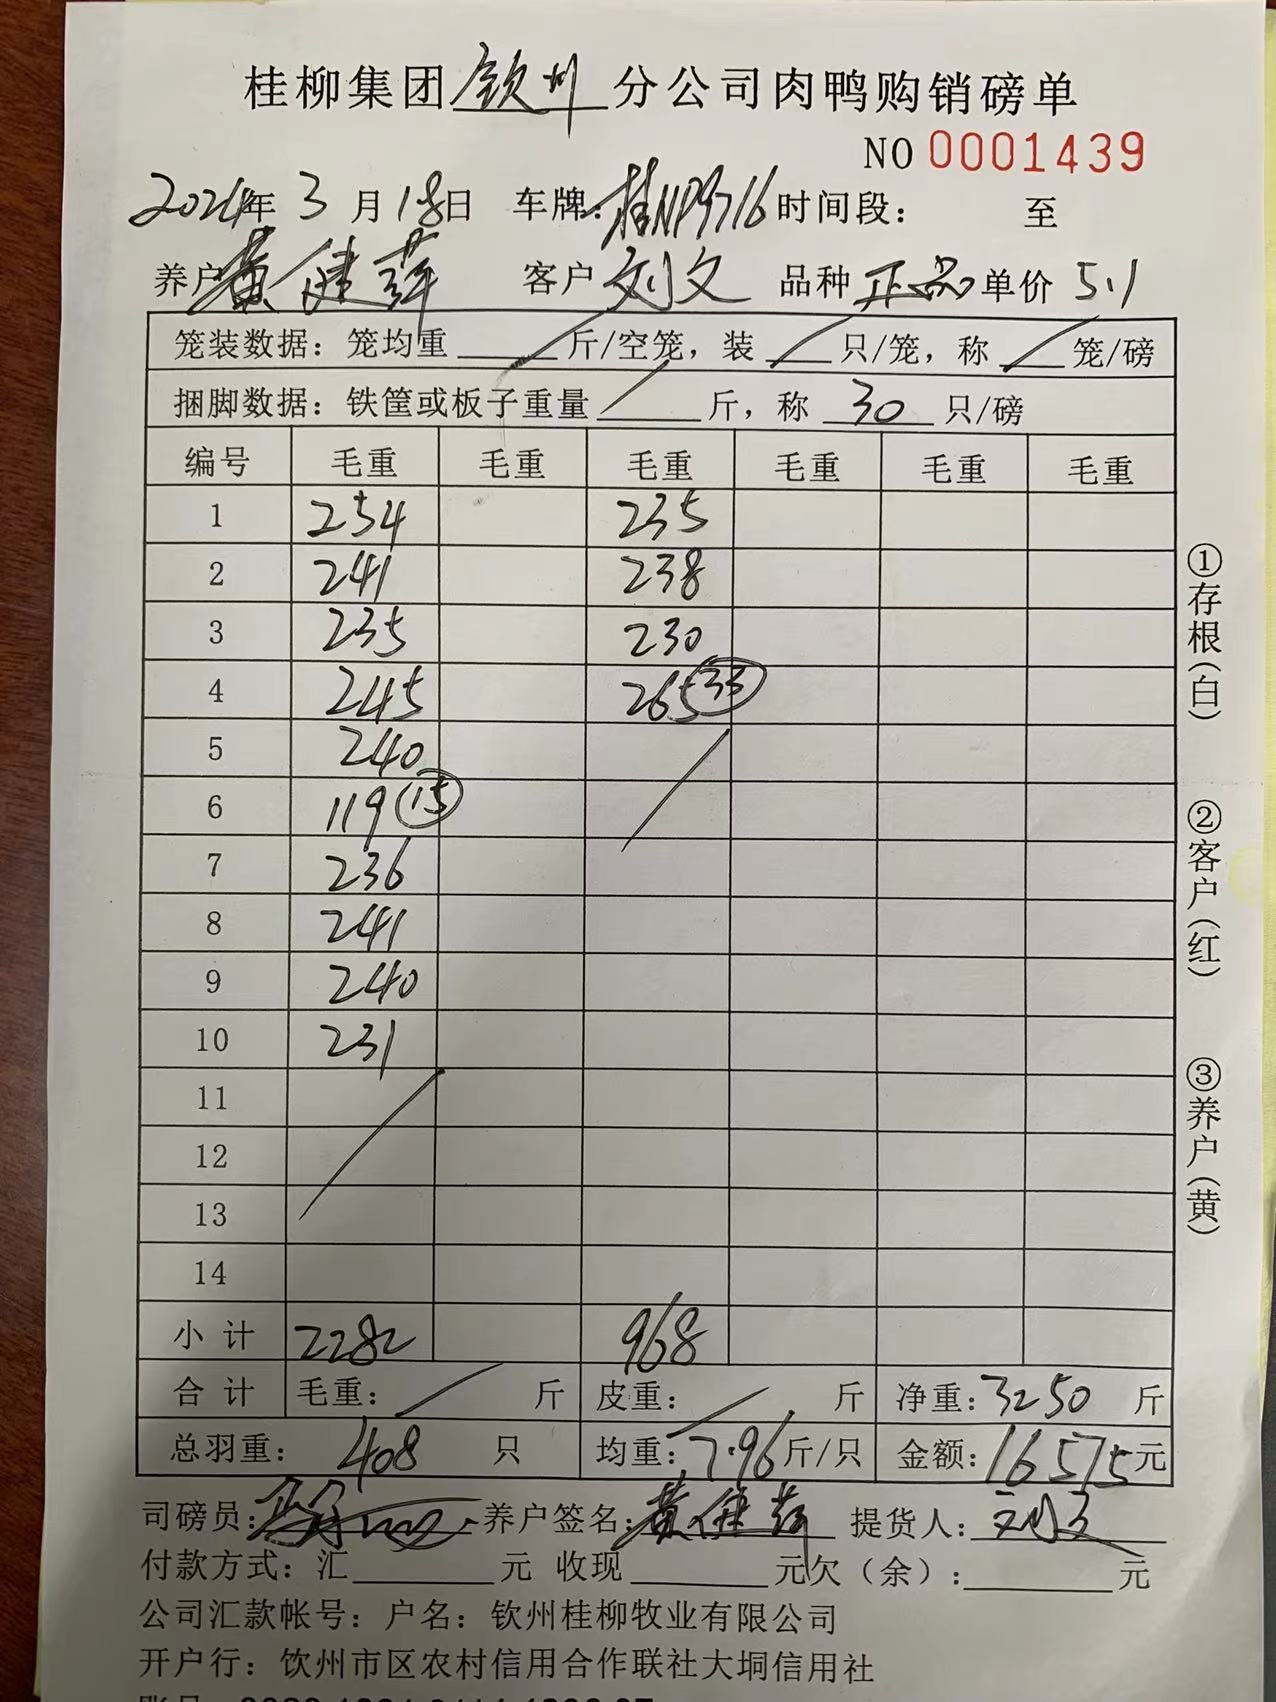 桂柳集团钦州分公司肉鸭购销磅单
NO 0001439
2024年 3月18日 车牌:桂NP9716 时间段: 至
养户黄健萍 客户刘文 品种正品 单价5.1
笼装数据:笼均重 / 斤/空笼,装 / 只/笼,称 / 笼/磅
捆脚数据:铁筐或板子重量 / 斤,称 30 只/磅
编号 毛重 毛重 毛重 毛重 毛重 毛重
1 254 235
2 241 238
3 235 230
4 245 265 (33)
5 240
6 119 (15)
7 236
8 241
9 240
10 231
11
12
13
14
小计 2282 968
合计 毛重: / 斤 皮重: / 斤 净重:3250 斤
总羽重: 408 只 均重:7.96斤/只 金额:16575元
司磅员: 养户签名:黄健萍 提货人:刘文
付款方式:汇 元 收现 元欠(余): 元
公司汇款帐号:户名:钦州桂柳牧业有限公司
开户行:钦州市区农村信用合作联社大垌信用社
①存根(白)
②客户(红)
③养户(黄)